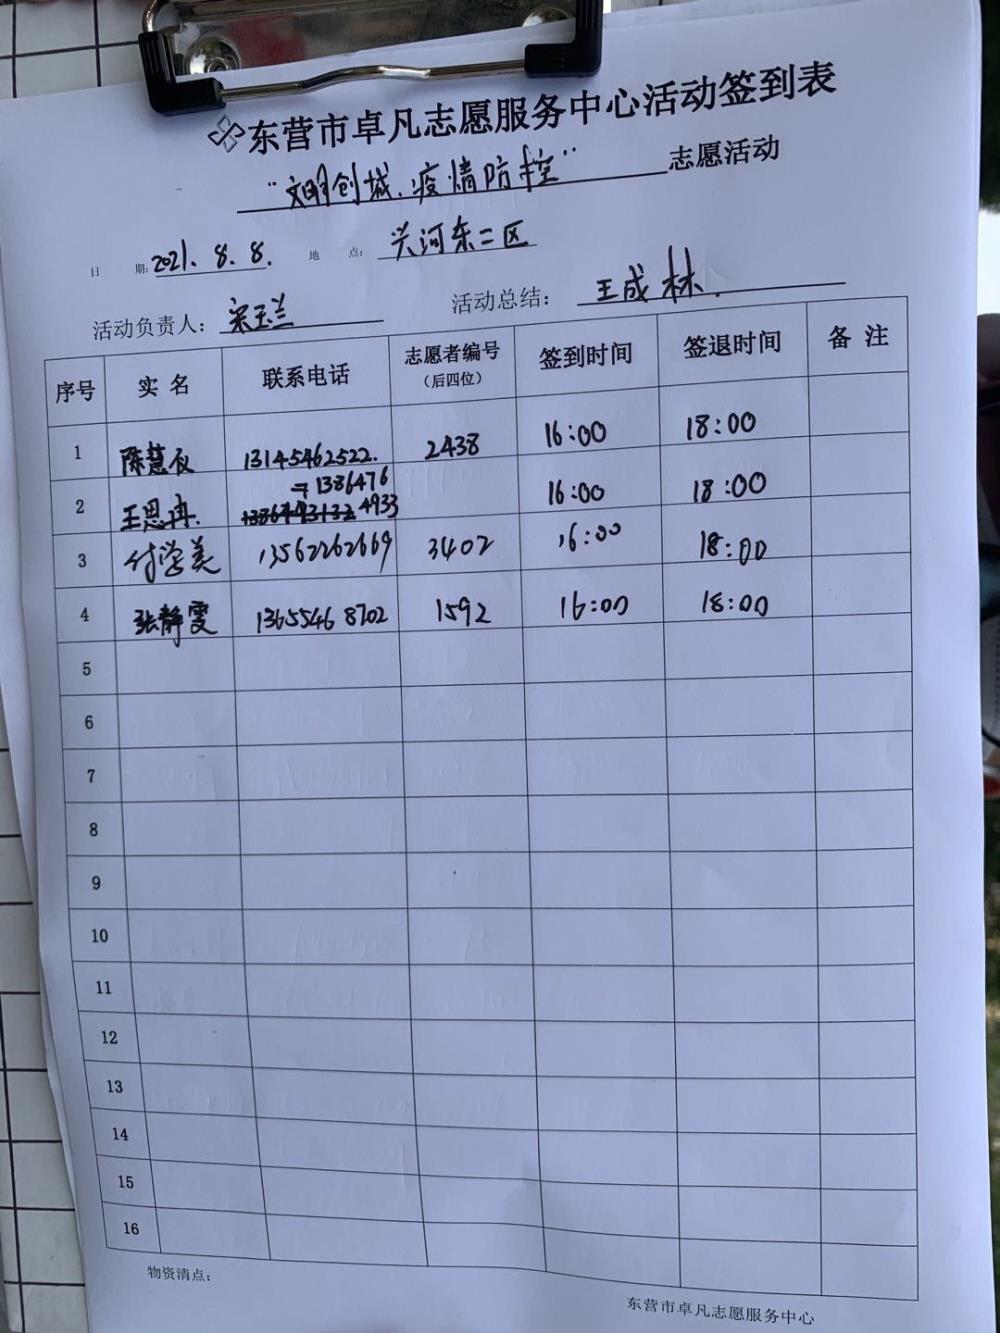 东营市卓凡志愿服务中心活动签到表
“文明创城、疫情防控” 志愿活动
日 期: 2021.8.8. 地 点: 兴河东二区
活动负责人: 宋玉兰 活动总结: 王成林.
序号 实名 联系电话 志愿者编号(后四位) 签到时间 签退时间 备注
1 陈慧仪 13145462522. 2438 16:00 18:00
2 王思冉. 1386476 4933 16:00 18:00
3 付学美 13562262669 3402 16:00 18:00
4 张静雯 13655468702 1592 16:00 18:00
5
6
7
8
9
10
11
12
13
14
15
16
物资清点:
东营市卓凡志愿服务中心